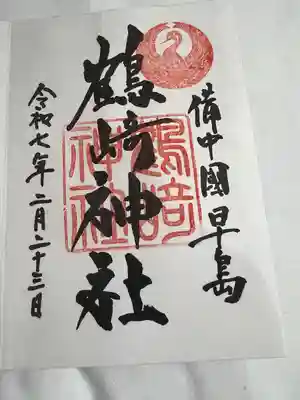 備中國早島
鶴崎神社
鶴崎
神社
令和七年二月二十三日